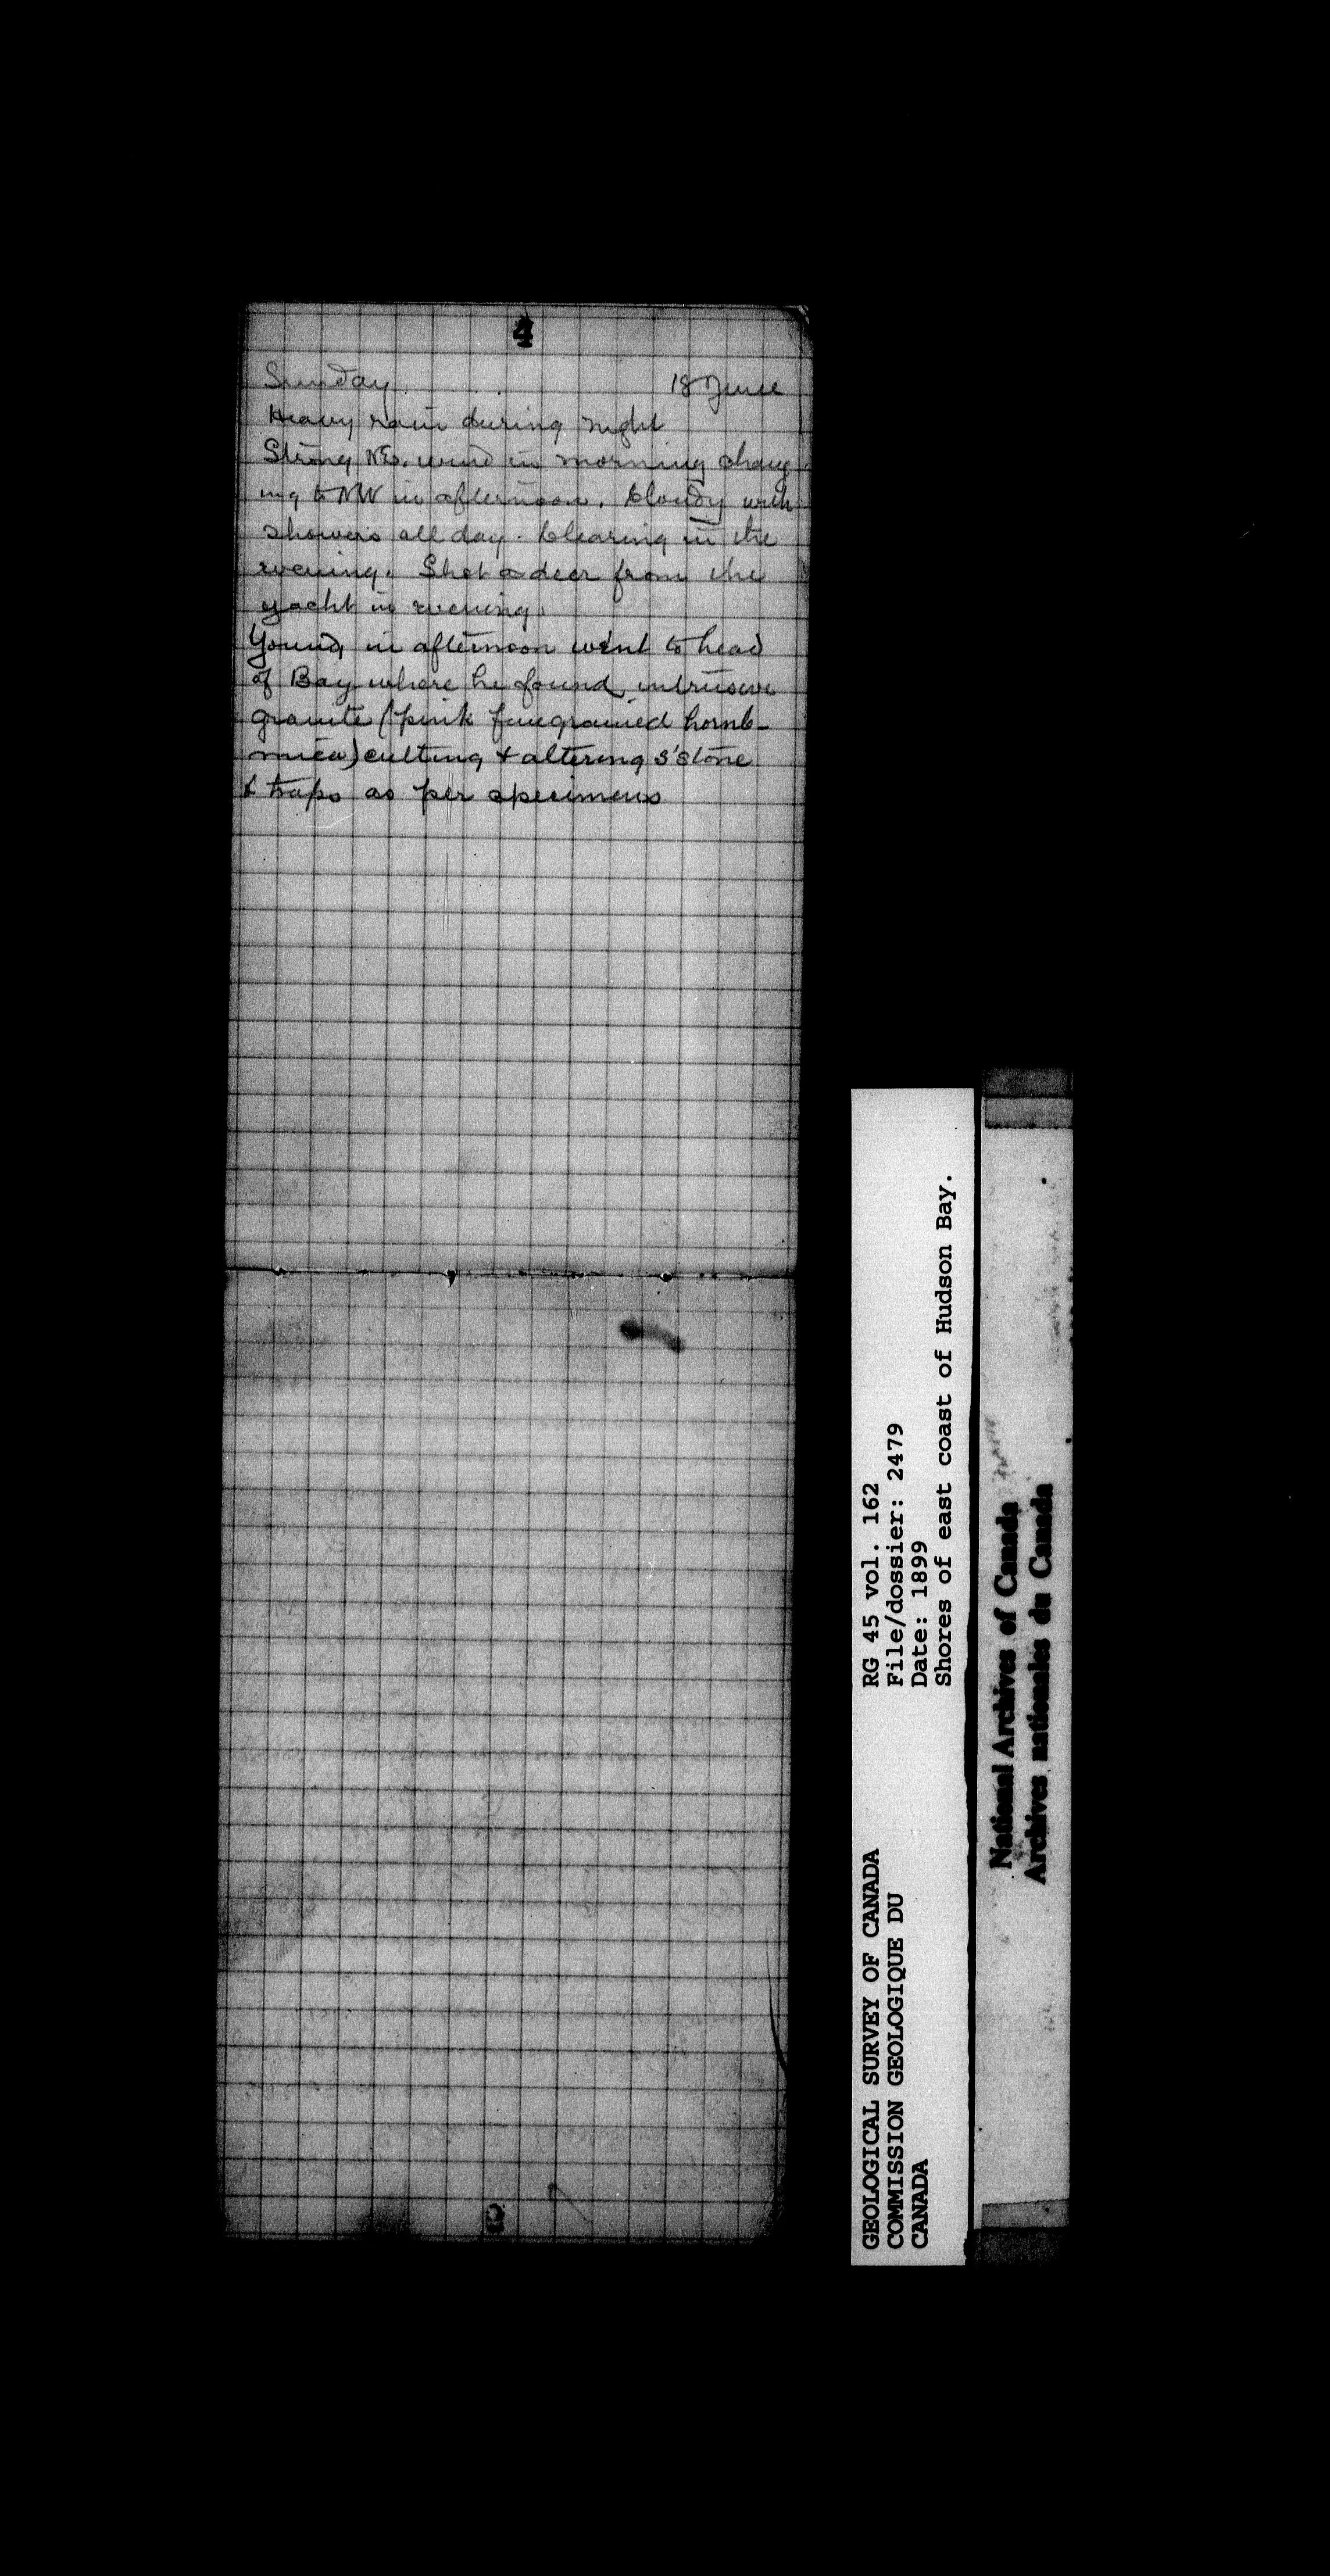 4
Sunday 18 June
Heavy rain during night
Strong NE. wind in morning chang
ing to NW in afternoon. Cloudy with
showers all day. Clearing in the
evening. Shot a deer from the
yacht in evening.
Young in afternoon went to head
of Bay where he found intrusive
granite (pink finegrained hornb-
mica) cutting & altering s'stone
& traps as per specimens
GEOLOGICAL SURVEY OF CANADA
COMMISSION GEOLOGIQUE DU
CANADA
RG 45 vol. 162
File/dossier: 2479
Date: 1899
Shores of east coast of Hudson Bay.
National Archives of Canada
Archives nationales du Canada